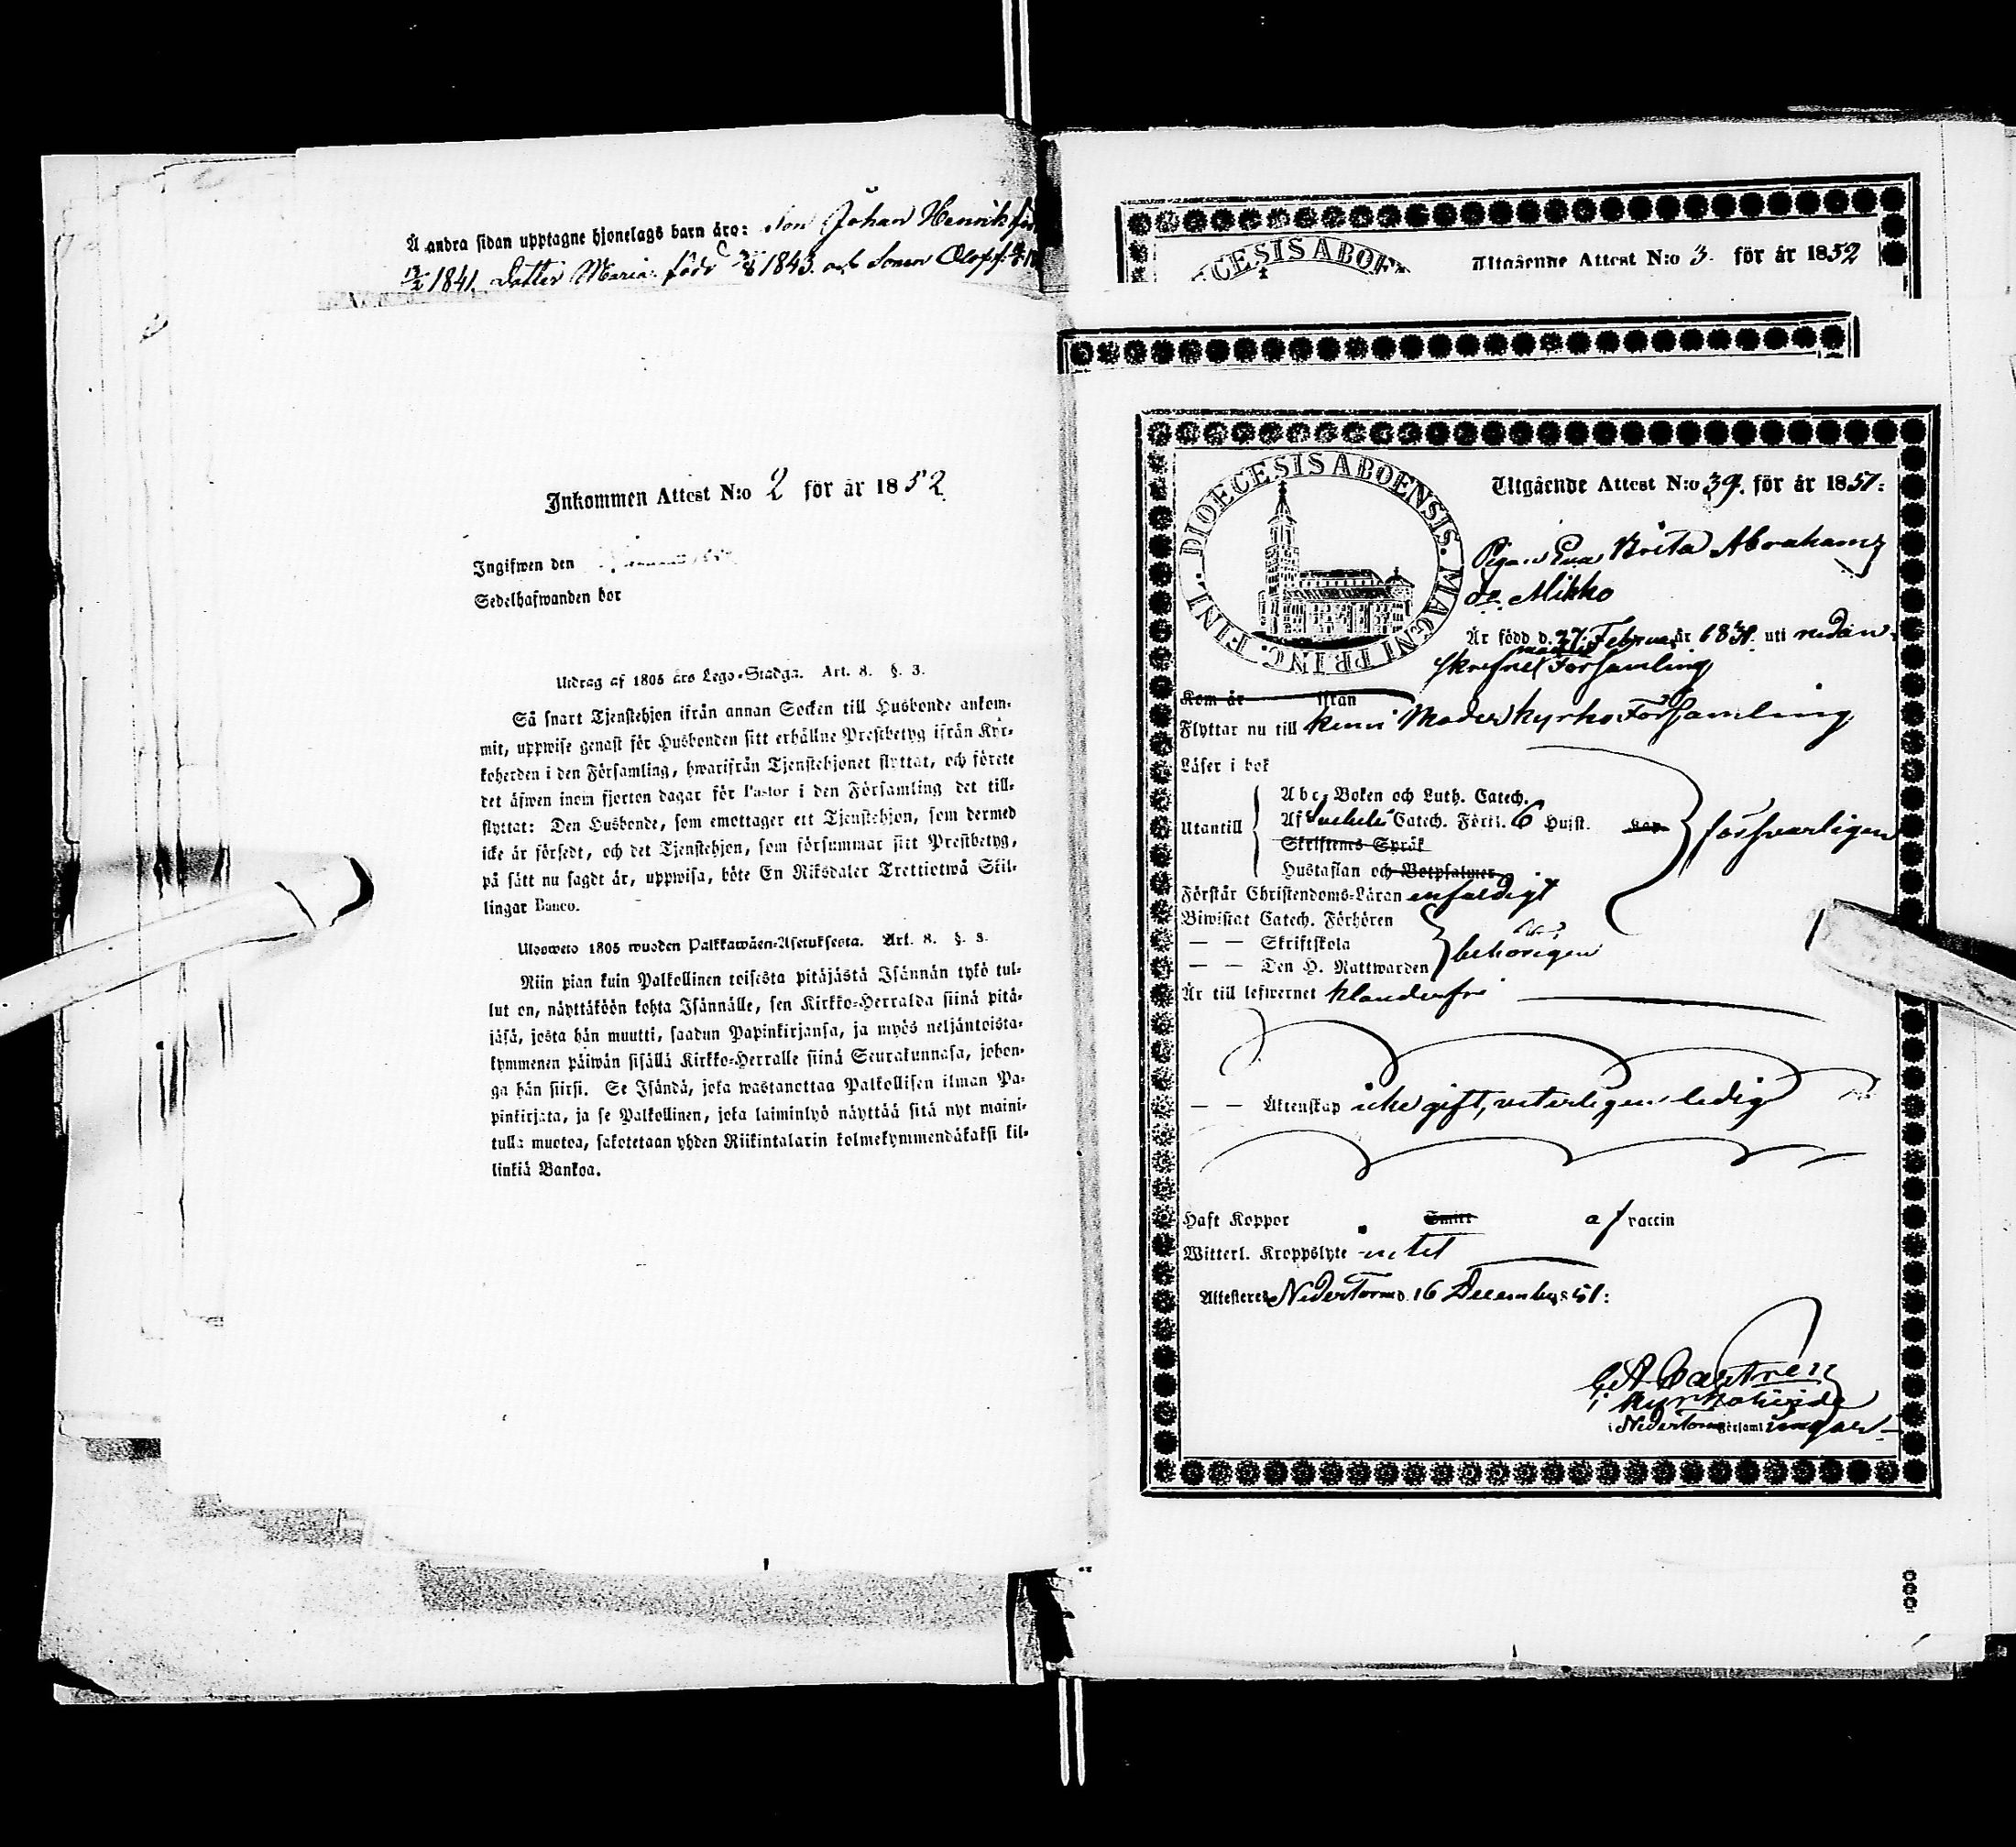 Å andra sidan upptagne hjonelags barn äro: Son Johan Henrik
1841. Dotter Maria född 1843. och Sonen Olof
Inkommen Attest N:o 2 för år 1852
Ingifwen den
Sedelhafwanden bor
Utdrag af 1805 års Lego-Stadga. Art. 8. §. 3.
Så snart Tjenstehjon ifrån annan Socken till Husbonde ankom-
mit, uppwise genast för Husbonden sitt erhållne Prestbetyg ifrån Kyr-
koherden i den Församling, hwarifrån Tjenstehjonet flyttat, och förete
det äfwen inom fjorton dagar för Pastor i den Församling det till-
flyttat: Den Husbonde, som emottager ett Tjenstehjon, som dermed
icke är försedt, och det Tjenstehjon, som försummar sitt Prestbetyg,
på sätt nu sagdt är, uppwisa, böte En Riksdaler Trettiotwå Skil-
lingar Banco.
Ulosweto 1805 wuoden Palkkawäen-Asetuksesta. Art. 8. §. 3.
Niin pian kuin Palkollinen toisesta pitäjästä Isännän tykö tul-
lut on, näyttäköön kohta Isännälle, sen Kirkko-Herralda siinä pitä-
jäsä, josta hän muutti, saadun Papinkirjansa, ja myös neljäntoista-
kymmenen päiwän sisällä Kirkko-Herralle siinä Seurakunnasa, johon-
ga hän siirsi. Se Isändä, joka wastanottaa Palkollisen ilman Pa-
pinkirjata, ja se Palkollinen, joka laiminlyö näyttää sitä nyt maini-
tulla muotoa, sakotetaan yhden Riikintalarin kolmekymmendäkaksi kil-
linkiä Bankoa.
CESIS ABOEN
Utgående Attest N:o 3. för år 1852
DIOECESIS ABOENSIS. MAGNI PRINC. FINL.
Utgående Attest N:o 39. för år 1851:
Pigan Eva Brita Abrahams
dr. Mikko
Är född d. 27 Februar år 1831. uti nedan-
skrefne Församling
Kom år ifrån
Flyttar nu till Kemi Moderkyrko Församling
Läser i bok
Abc-Boken och Luth. Catech.
Utantill Af Svebelii Catech. Förkl. 6 Hufst. Kap. försvarligen
Skriftens Språk
Hustaflan och Botpsalmer
Förstår Christendoms-Läran enfaldigt
Biwistat Catech. Förhören
— — Skriftskola behörigen
— — Den H. Nattwarden
Är till lefwernet klanderfri
— — Äktenskap icke gift, veterligen ledig
Haft Koppor Smitt af vaccin
Witterl. Kroppslyte intet
Attesteres Nedertorneå d. 16 December 1851:
Castrén
Kyrkoherde
i Nedertorneå Församlingar